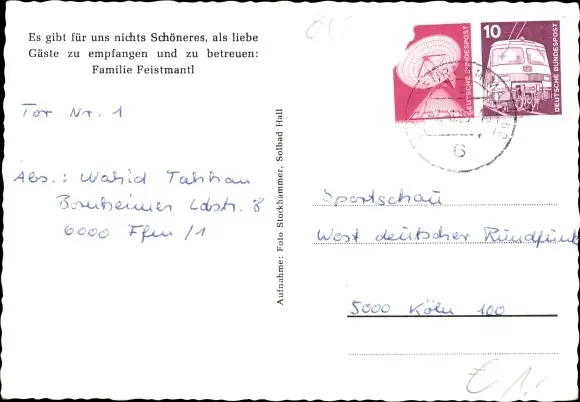 Es gibt für uns nichts Schöneres, als liebe
Gäste zu empfangen und zu betreuen:
Familie Feistmantl
Tor Nr. 1
Abs.: Wahid
Bornheimer Ldstr. 8
6000 Ffm /1
Aufnahme: Foto Stockhammer, Solbad Hall
DEUTSCHE BUNDESPOST
10
DEUTSCHE BUNDESPOST
6
Sportschau
West deutscher Rundfunk
5000 Köln 100
€ 1,-